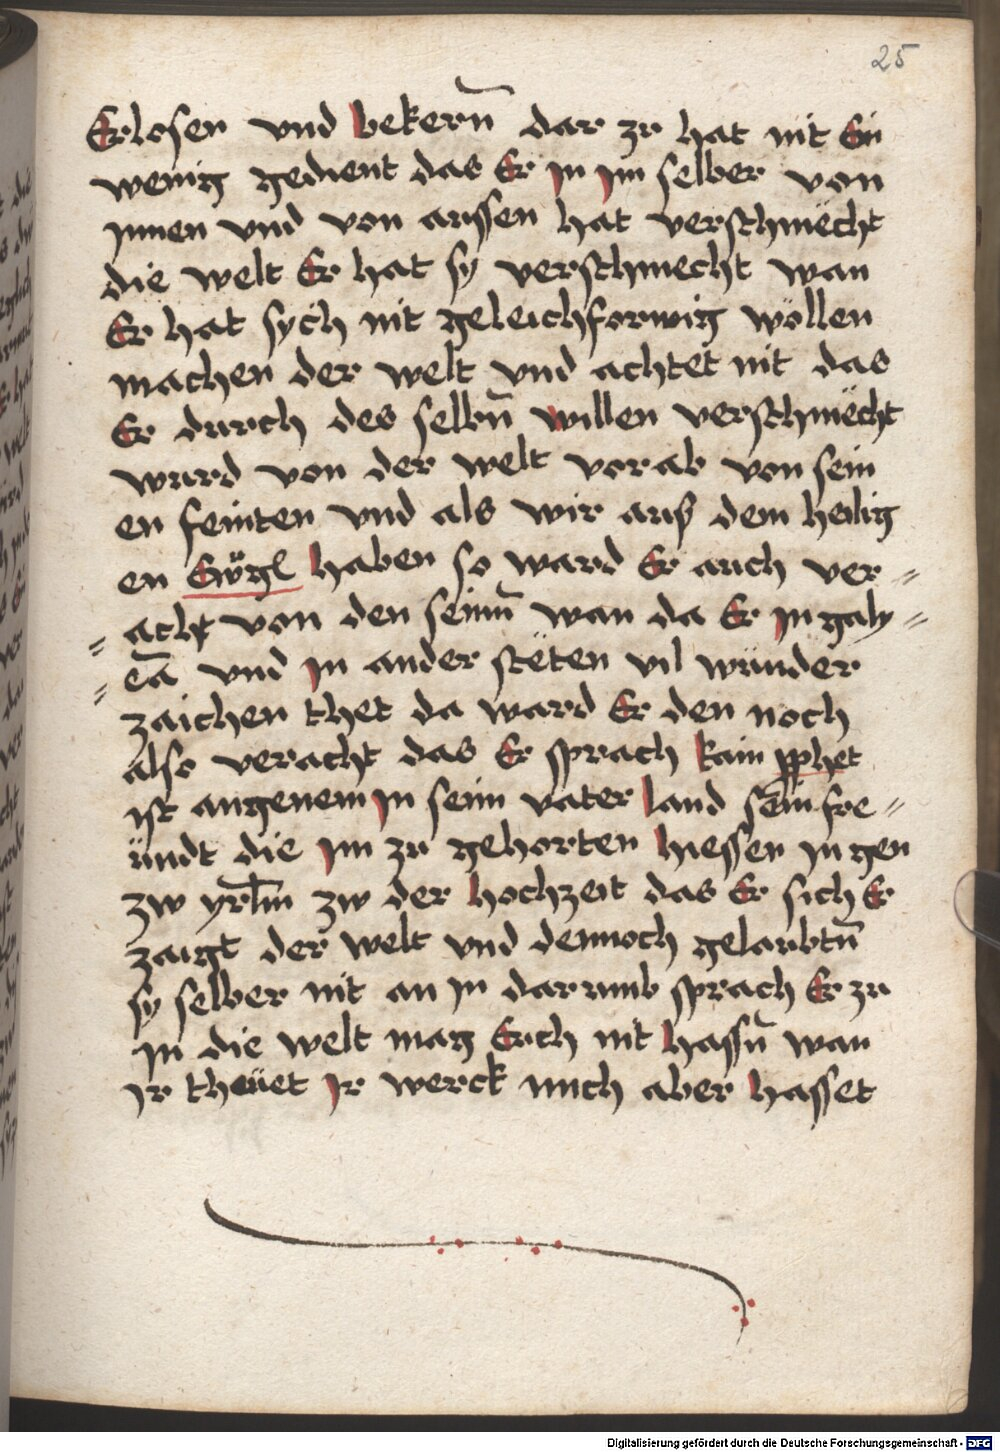 25
Erlosen vnd bekern̄ dar zu hat nit Ein
wenig gedient das Er in im selber von
Innen vnd von aussen hat verschmëcht
die welt Er hat sy verschmecht wan
Er hat sych nit geleichformig wöllen
machen der welt vnd achtet nit das
Er durch des selbn̄ willen verschmëcht
wurd von der welt vorab von sein
en feinten vnd als wir auß dem heilig
en Ewgl haben so ward Er auch ver =
= acht von den seinn̄ wan da Er In galy =
= eā vnd In ander stëten vil wunder
zaichen thet da ward Er den noch
also veracht das Er sprach kain pphet
ist angenem In seim vater land sein fre =
undt die im zu gehorten hiessen In gen
zw yrlm̄ zw der hochzeit das Er sich Er
zaigt der welt vnd dennoch gelaubtn̄
sy selber nit an In darumb sprach Er zu
In die welt mag Euch nit hassn̄ wan
Ir theüet Ir werck mich aber hasset
Digitalisierung gefördert durch die Deutsche Forschungsgemeinschaft - DFG